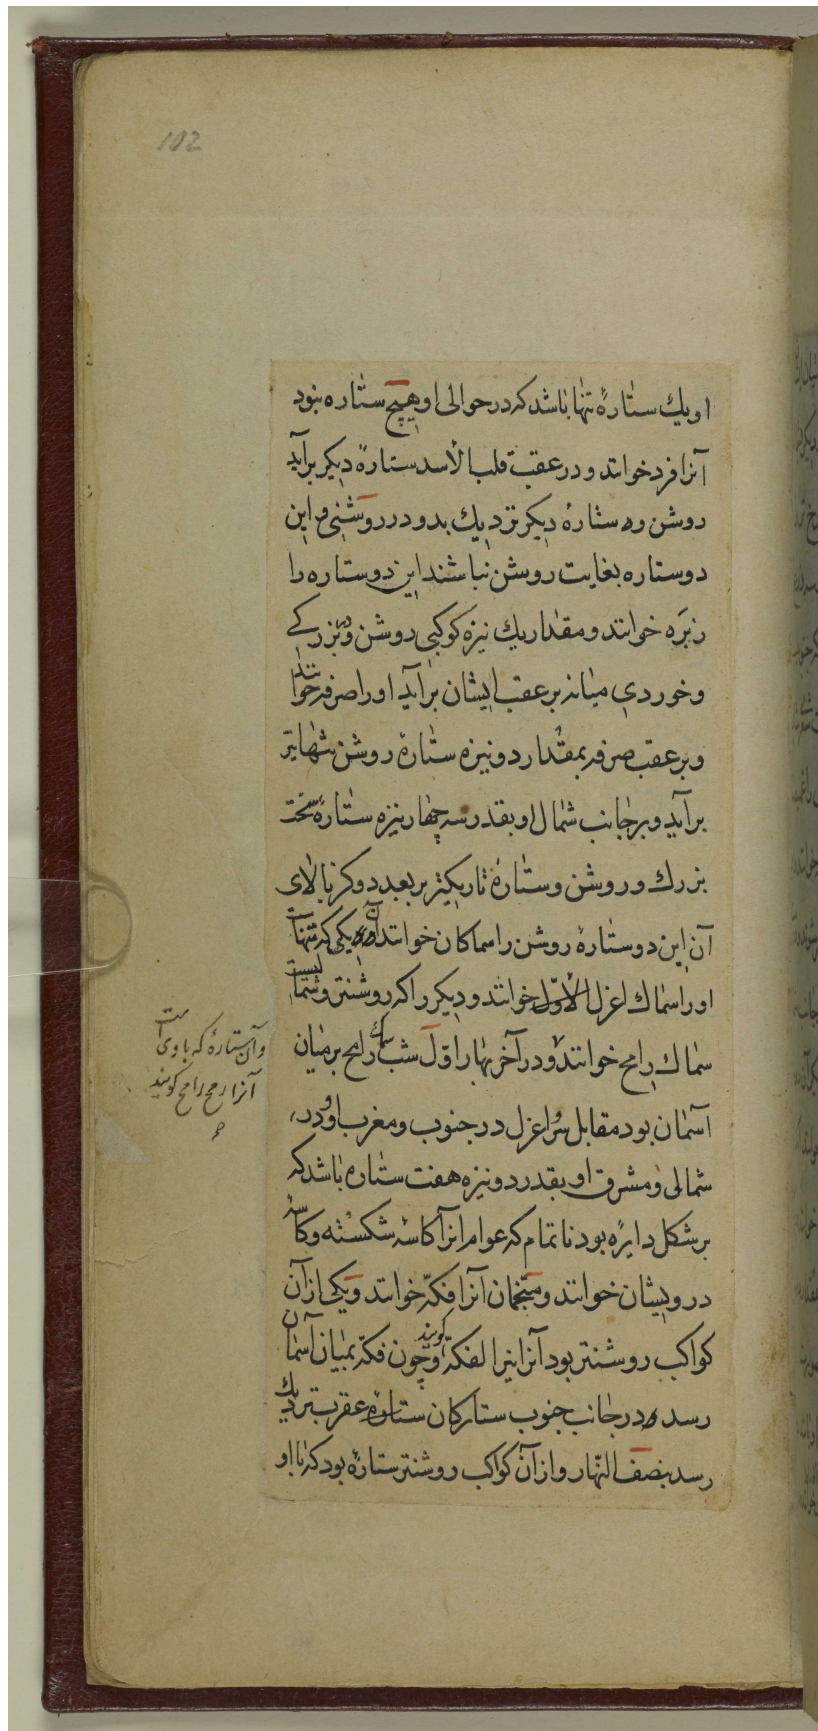 102
او یك ستارهٔ تنها باشد که در حوالی او هیچ ستاره نبود
آنرا فرد خوانند و در عقب قلب الأسد ستارهٔ دیکر برآید
روشن و ستارهٔ دیکر نزدیك بدو در روشنی و این
دو ستاره بغایت روشن نباشند این دو ستاره را
زبَره خوانند و مقدار یك نیزه کوکبی روشن و بزرکے
و خوردی میانه بر عقب ایشان برآید او را صرفه خوانند
و بر عقب صرفه بمقدار دو نیزه ستارهٔ روشن تنها
برآید و بر جانب شمال او بقدر سه چهار نیزه ستارهٔ سخت
بزرك و روشن و ستارهٔ تاریکتر بر بعد دو کز بالای
آن این دو ستارهٔ روشن را سماکان خوانند آن یکی که تنهاست
او را سماك اعزل خوانند و دیکر را که روشنتر و شمالیست
سماك رامح خوانند و در آخر بهار اوّل شب سماك رامح بر میان
آسمان بود مقابل سر و اعزل در جنوب و مغرب او و در
شمالی و مشرق او بقدر دو نیزه هفت ستاره باشد که
بر شکل دایره بود ناتمام که عوام آنرا کاسهٔ شکسته و کاسهٔ
درویشان خوانند و منجّمان آنرا فکّه خوانند و یکی از آن
کواکب روشنتر بود آنرا نیر الفکّه کویند و چون فکّه بمیان آسمان
رسد در جانب جنوب ستارکان عقرب نزدیك
رسد بنصف النّهار و از آن کواکب روشنتر ستارهٔ بود که با او
و آن ستارهٔ که با وی است
آنرا رمح رامح کویند